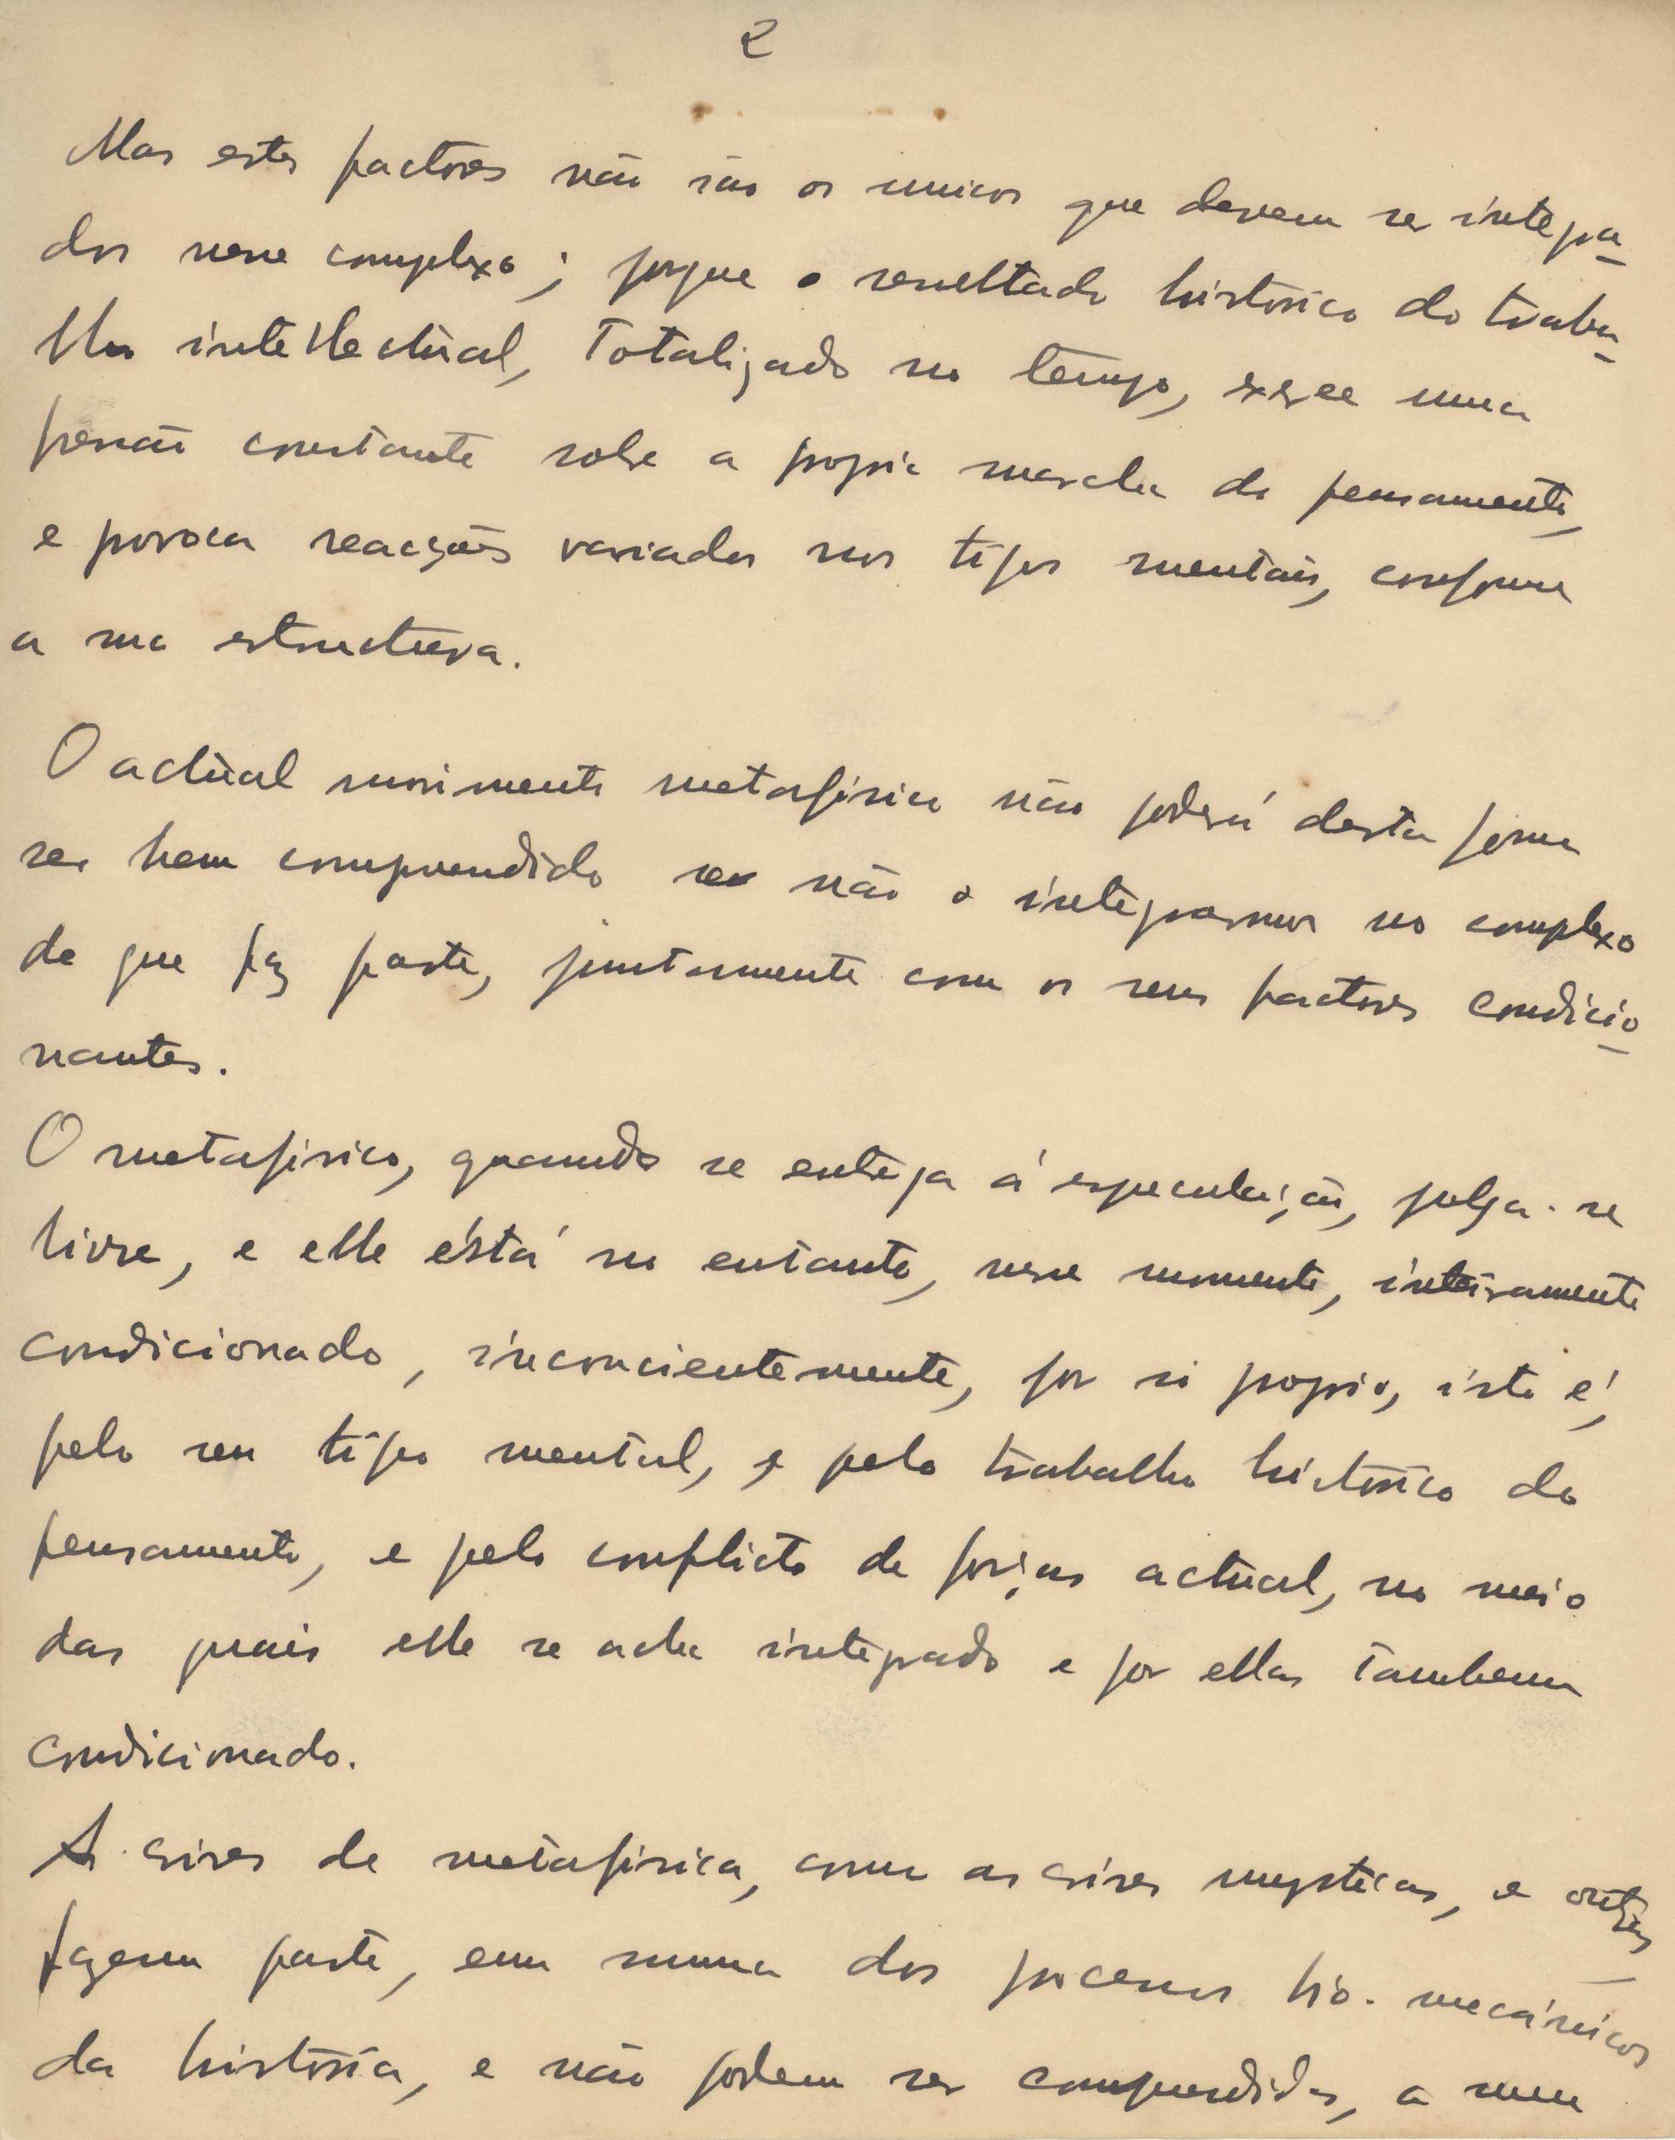 2
Mas estes factores não são os unicos que devem ser integra-
dos nesse complexo; porque o resultado historico do traba-
lho intellectual, totalizado no tempo, exerce uma
pressão constante sobre a propria marcha do pensamento,
e provoca reacções variadas nos tipos mentais, conforme
a sua estructura.
O actual movimento metafisico não poderá desta forma
ser bem comprendido se não o integrarmos no complexo
de que faz parte, juntamente com os seus factores condicio-
nantes.
O metafisico, quando se entrega á especulação, julga-se
livre, e elle está no entanto, nesse momento, inteiramente
condicionado, inconcientemente, por si proprio, isto é,
pelo seu tipo mental, e pelo trabalho historico do
pensamento, e pelo conflicto de forças actual, no meio
das quais elle se acha integrado e por ellas tambem
condicionado.
As crises de metafisica, como as crises mysticas, e outras
fazem parte, em summa dos processos bio-mecánicos
da historia, e não podem ser comprendidas, a meu